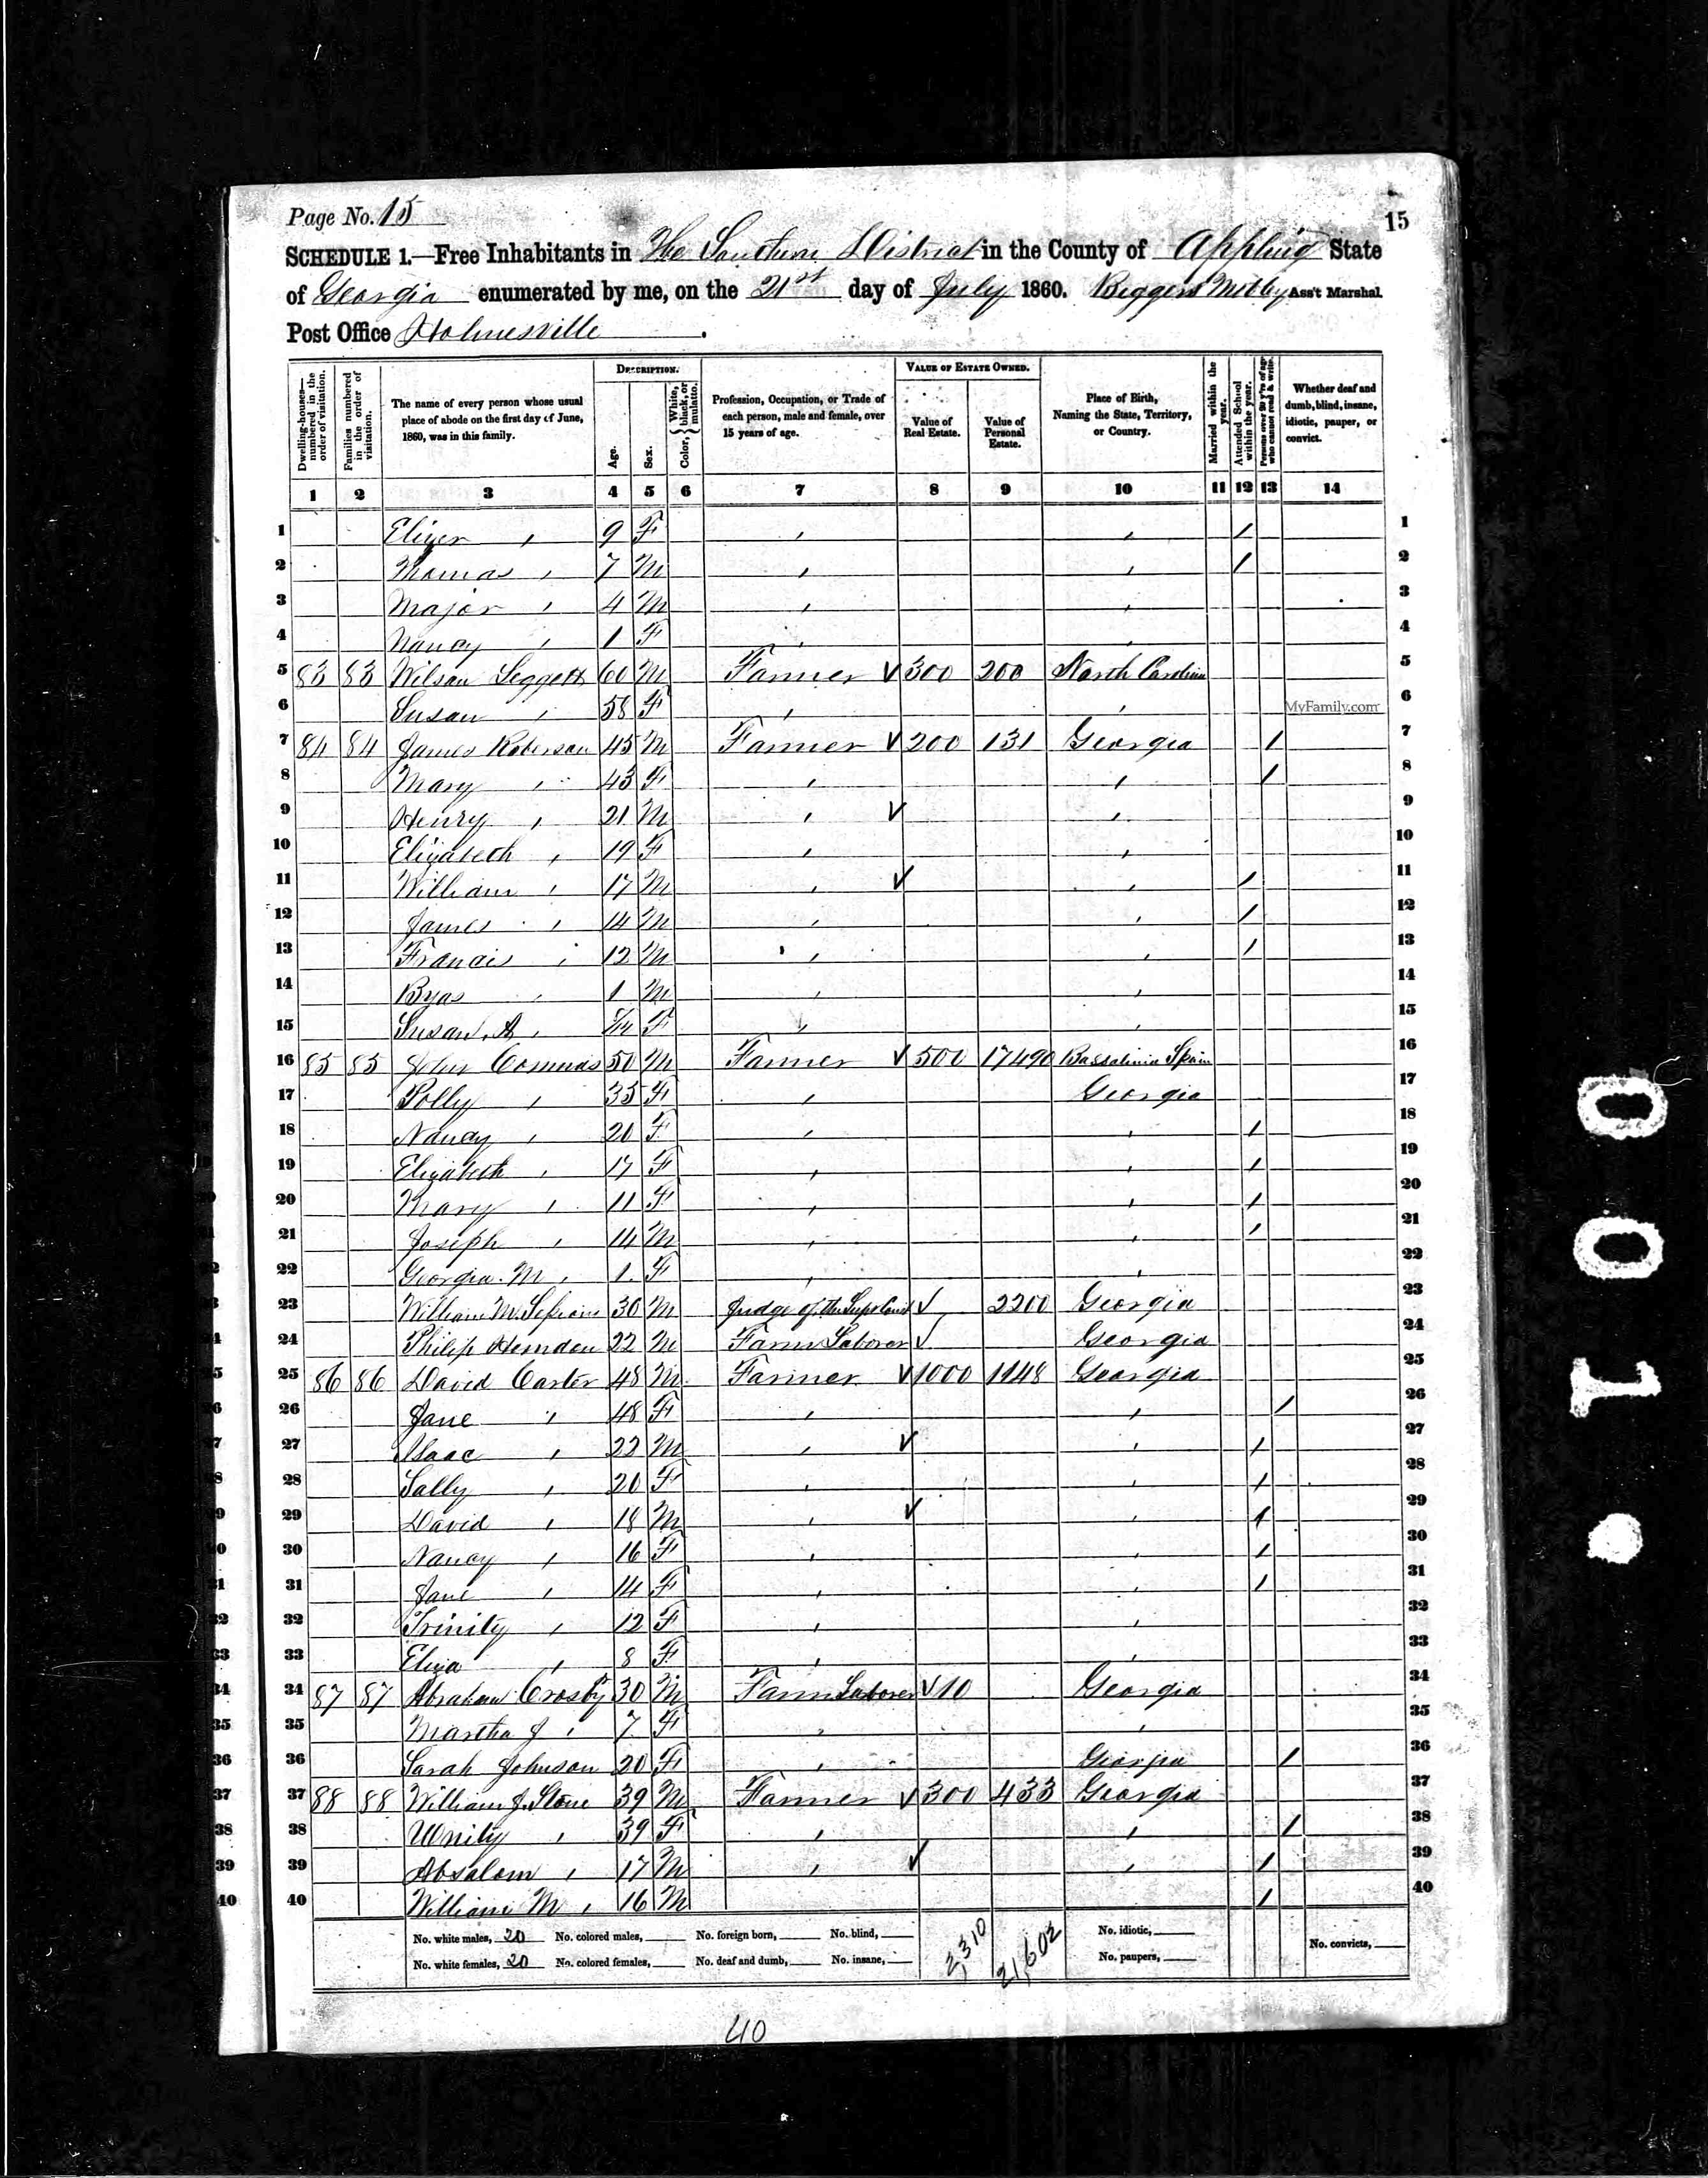 Page No. 15
15
SCHEDULE 1.—Free Inhabitants in The Southern District in the County of Appling State
of Georgia enumerated by me, on the 21st day of July 1860. Ass't Marshal
Post Office Holmesville.
DESCRIPTION. VALUE OF ESTATE OWNED.
Dwelling-houses—numbered in the order of visitation.
Families numbered in the order of visitation.
The name of every person whose usual place of abode on the first day of June, 1860, was in this family.
Age.
Sex.
Color, { White, black, or mulatto.
Profession, Occupation, or Trade of each person, male and female, over 15 years of age.
Value of Real Estate.
Value of Personal Estate.
Place of Birth, Naming the State, Territory, or Country.
Married within the year.
Attended School within the year.
Persons over 20 y'rs of age who cannot read & write.
Whether deaf and dumb, blind, insane, idiotic, pauper, or convict.
1 2 3 4 5 6 7 8 9 10 11 12 13 14
1 Elizer " 9 F " " / 1
2 Thomas " 7 M " " / 2
3 Major " 4 M " " 3
4 Nancy " 1 F " " 4
5 83 83 Wilson Leggett 60 M Farmer ✓ 300 200 North Carolina 5
6 Susan " 58 F " " 6
MyFamily.com
7 84 84 James Roberson 45 M Farmer ✓ 200 131 Georgia / 7
8 Mary " 43 F " " / 8
9 Henry " 21 M " ✓ " 9
10 Elizabeth " 19 F " " 10
11 William " 17 M " ✓ " / 11
12 James " 14 M " " / 12
13 Francis " 12 M " " / 13
14 Byas " 1 M " " 14
15 Susan A " F " " 15
16 85 85 John Commas 50 M Farmer ✓ 500 17490 Spain 16
17 Polly " 35 F " Georgia 17
18 Nancy " 20 F " " / 18
19 Elizabeth " 17 F " " / 19
20 Mary " 11 F " " / 20
21 Joseph " 14 M " " / 21
22 Georgia M " 1 F " " 22
23 William M. 30 M Judge of the ✓ 2200 Georgia 23
24 Philip Hernden 22 M Farm Laborer ✓ Georgia 24
25 86 86 David Carter 48 M Farmer ✓ 1000 1148 Georgia 25
26 Jane " 48 F " " / 26
27 Isaac " 22 M " ✓ " / 27
28 Sally " 20 F " " / 28
29 David " 18 M " ✓ " / 29
30 Nancy " 16 F " " / 30
31 Jane " 14 F " " / 31
32 Trinity " 12 F " " 32
33 Eliza " 8 F " " 33
34 87 87 Abraham Crosby 30 M Farm Laborer ✓ 10 Georgia 34
35 Martha J " 7 F " " 35
36 Sarah Johnson 20 F " Georgia / 36
37 88 88 William J. Stone 39 M Farmer ✓ 300 433 Georgia 37
38 Unity " 39 F " " / 38
39 Absalom " 17 M " ✓ " / 39
40 William M " 16 M / 40
No. white males, 20 No. colored males, No. foreign born, No. blind, 2,310 21,602 No. idiotic,
No. white females, 20 No. colored females, No. deaf and dumb, No. insane, No. paupers, No. convicts,
40
001